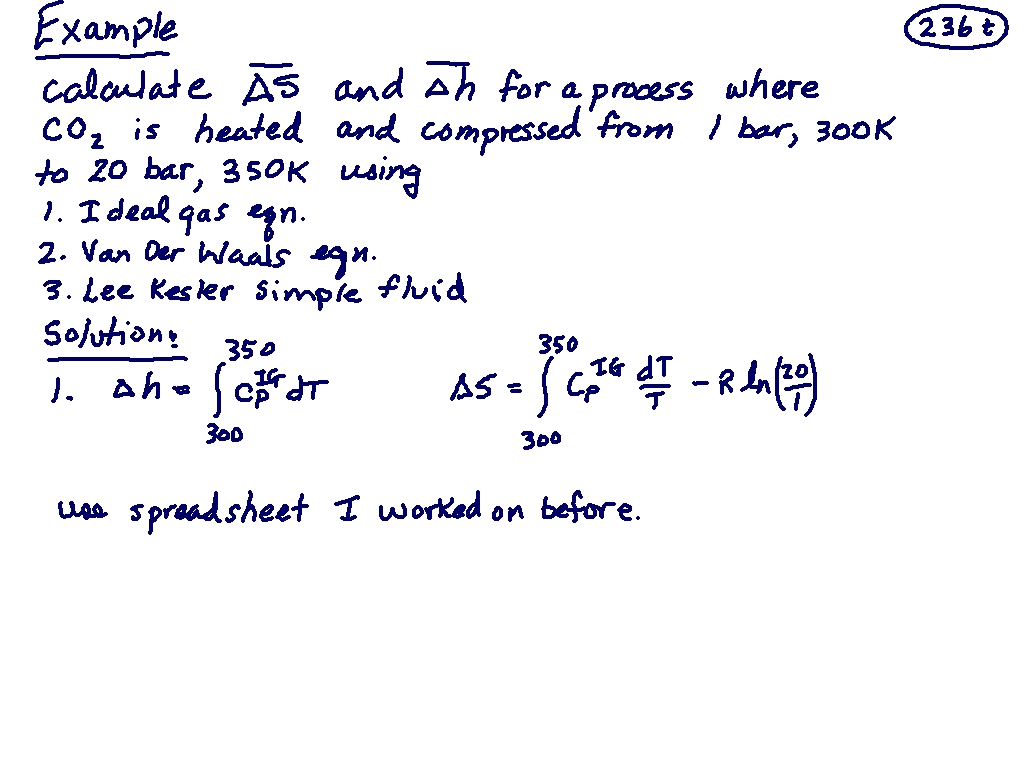 Example
236t
calculate Δs̅ and Δh̅ for a process where
CO₂ is heated and compressed from 1 bar, 300K
to 20 bar, 350K using
1. Ideal gas eqn.
2. Van Der Waals eqn.
3. Lee Kesler Simple fluid
Solution:
1. Δh = ∫₃₀₀³⁵⁰ Cp^IG dT    Δs = ∫₃₀₀³⁵⁰ Cp^IG dT/T - R ln(20/1)
use spreadsheet I worked on before.